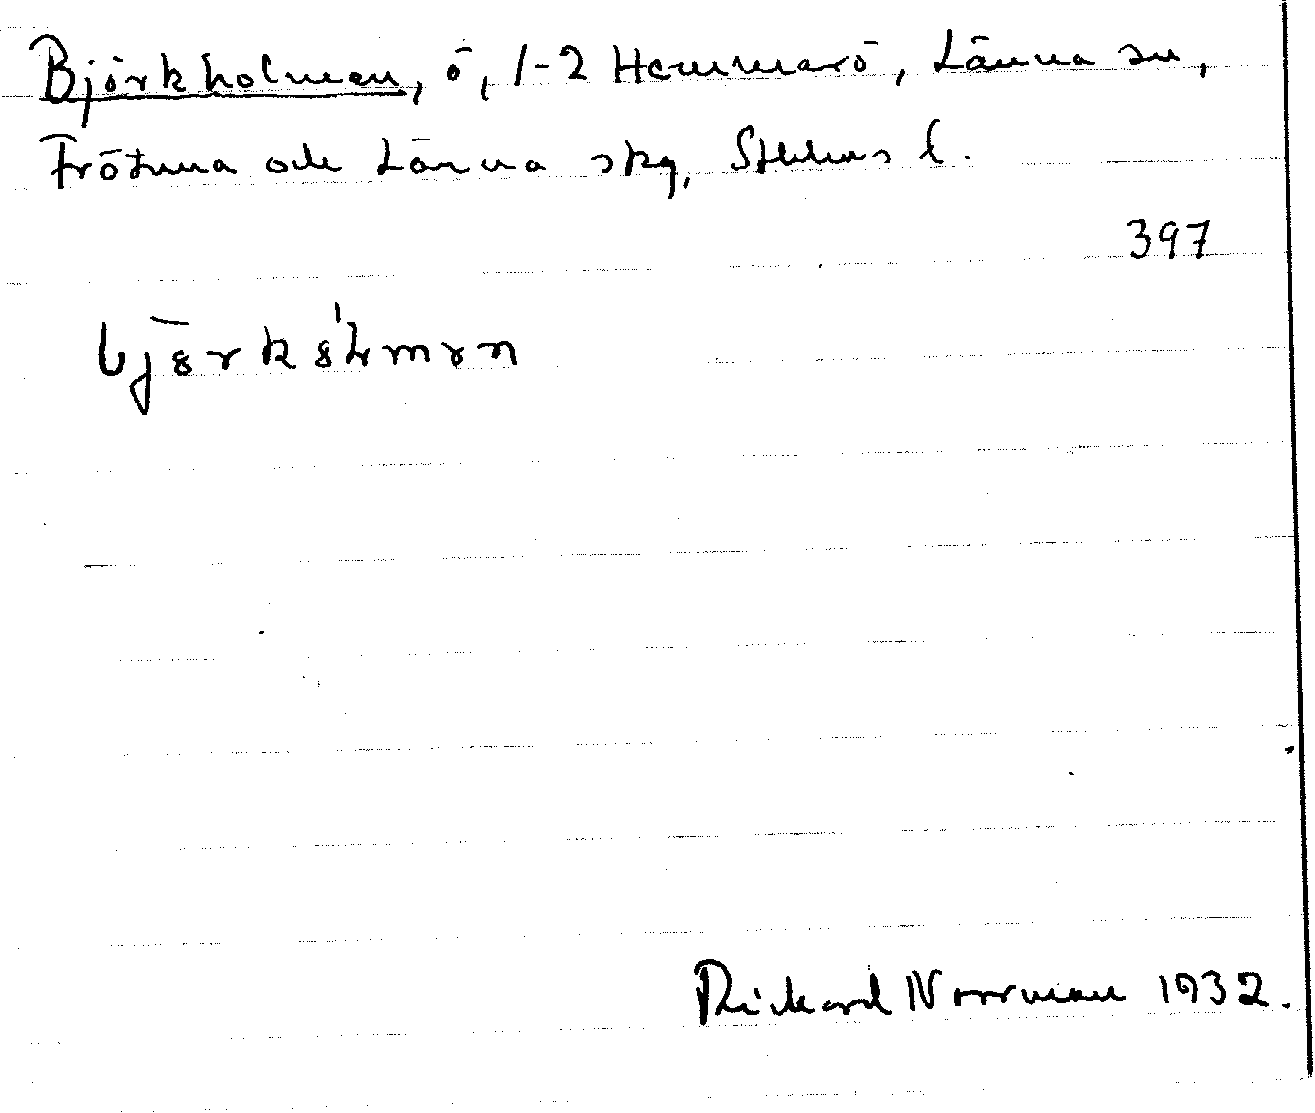 Björkholmen, ö, 1-2 Hemmarö, Länna sn,
Frötuna och Länna skg, Sthlms l.
397
Rickard Norrman 1932.